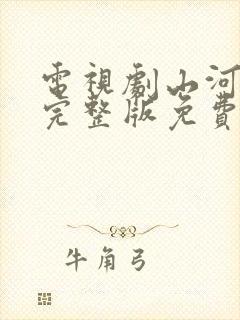 電視劇山河
完整版免費
牛角弓